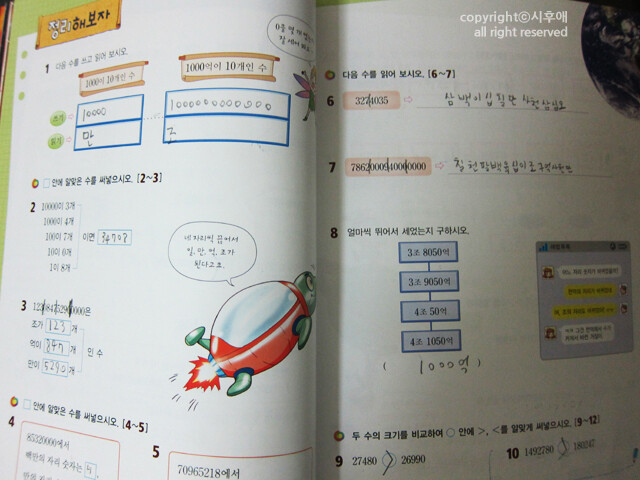 정리해보자
1 다음 수를 쓰고 읽어 보시오.
1000이 10개인 수
1000억이 10개인 수
쓰기
10000
1000000000000
읽기
만
조
0을 몇 개
잘 세어 봐요
□ 안에 알맞은 수를 써넣으시오. [2~3]
2
10000이 3개
1000이 4개
100이 7개
10이 0개
1이 8개
이면 34708
네 자리씩 끊어서
일, 만, 억, 조가
된다고요.
3
123084752900000은
조가 123개
억이 847개
만이 5290개
인 수
□ 안에 알맞은 수를 써넣으시오. [4~5]
4
85320000에서
백만의 자리 숫자는 5,
만의 자리
5
70965218에서
copyrightⓒ시후애
all right reserved
다음 수를 읽어 보시오. [6~7]
6 3274035 ⇨ 삼백이십칠만 사천삼십오
7 7862000940000000 ⇨ 칠천팔백육십이조
8 얼마씩 뛰어서 세었는지 구하시오.
3조 8050억
3조 9050억
4조 50억
4조 1050억
( 1000억 )
두 수의 크기를 비교하여 ○ 안에 >, <를 알맞게 써넣으시오. [9~12]
9 27480 > 26990
10 1492780 > 180247